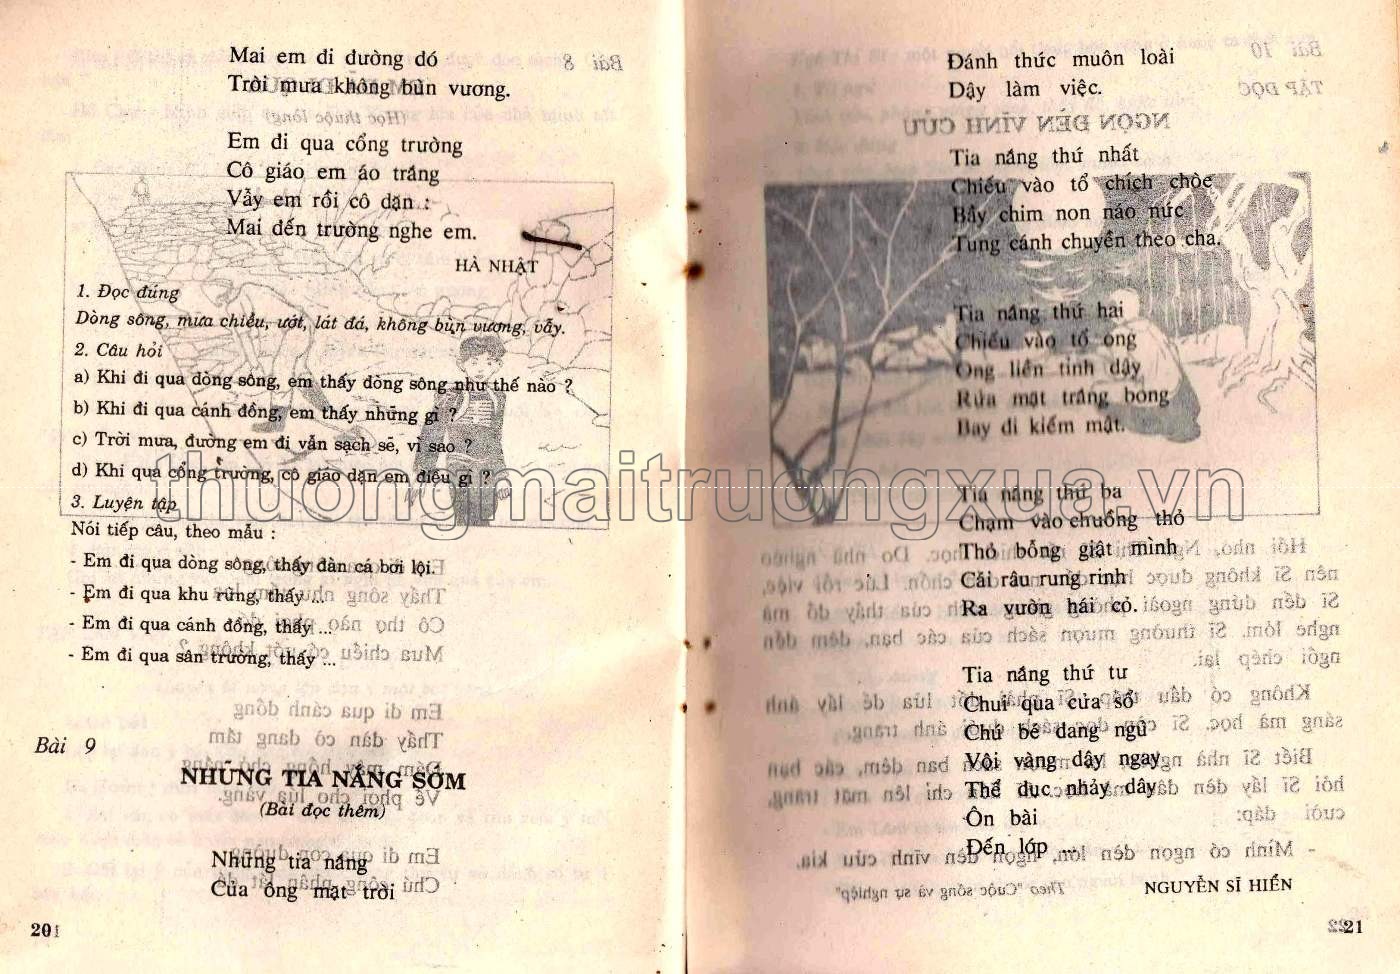 Mai em đi đường đó
Trời mưa không bùn vương.
Em đi qua cổng trường
Cô giáo em áo trắng
Vẫy em rồi cô dặn :
Mai đến trường nghe em.
HÀ NHẬT
1. Đọc đúng
Dòng sông, mưa chiều, ướt, lát đá, không bùn vương, vẫy.
2. Câu hỏi
a) Khi đi qua dòng sông, em thấy dòng sông như thế nào ?
b) Khi đi qua cánh đồng, em thấy những gì ?
c) Trời mưa, đường em đi vẫn sạch sẽ, vì sao ?
d) Khi qua cổng trường, cô giáo dặn em điều gì ?
3. Luyện tập
Nói tiếp câu, theo mẫu :
- Em đi qua dòng sông, thấy đàn cá bơi lội.
- Em đi qua khu rừng, thấy ...
- Em đi qua cánh đồng, thấy ...
- Em đi qua sân trường, thấy ...
Bài 9
NHỮNG TIA NẮNG SỚM
(Bài đọc thêm)
Những tia nắng
Của ông mặt trời
20
Đánh thức muôn loài
Dậy làm việc.
Tia nắng thứ nhất
Chiếu vào tổ chích chòe
Bầy chim non náo nức
Tung cánh chuyền theo cha.
Tia nắng thứ hai
Chiếu vào tổ ong
Ong liền tỉnh dậy
Rửa mặt trắng bong
Bay đi kiếm mật.
Tia nắng thứ ba
Chạm vào chuồng thỏ
Thỏ bỗng giật mình
Cái râu rung rinh
Ra vườn hái cỏ.
Tia nắng thứ tư
Chui qua cửa sổ
Chú bé đang ngủ
Vội vàng dậy ngay
Thể dục nhảy dây
Ôn bài
Đến lớp ...
NGUYỄN SĨ HIỀN
21
thuongmaitruongxua.vn